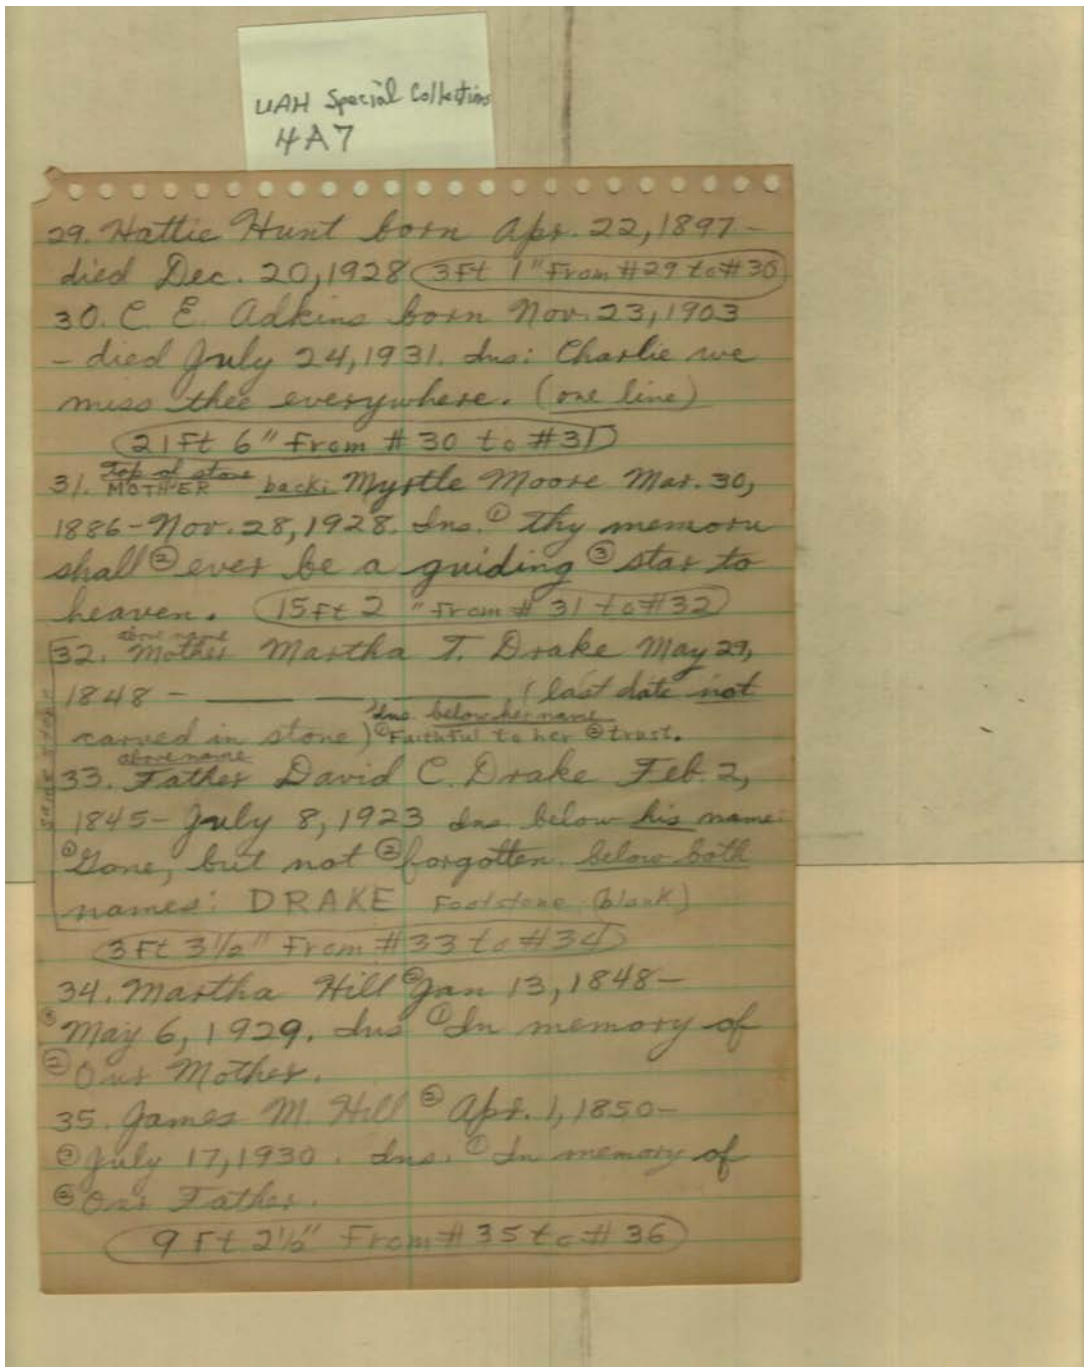 UAH Special Collections
4A7
29. Hattie Hunt born Apr. 22, 1897 –
died Dec. 20, 1928 (3Ft 1" From #29 to #30)
30. C. E. Adkins born Nov. 23, 1903
– died July 24, 1931. Ins: Charlie we
miss thee everywhere. (one line)
(21Ft 6" From #30 to #31)
Top of stone
31. MOTHER back: Myrtle Moore Mar. 30,
1886 – Nov. 28, 1928. Ins. ① Thy memory
shall ② ever be a guiding ③ star to
heaven. (15Ft 2" From #31 to #32)
above name
32. Mother Martha T. Drake May 29,
1848 – ______ , ______ . (last date not
Ins. below her name
carved in stone) ① Faithful to her ② trust.
above name
33. Father David C. Drake Feb. 2,
same stone
1845 – July 8, 1923 Ins. below his name:
① Gone, but not ② forgotten. below both
names: DRAKE Footstone (blank)
(3Ft 3½" From #33 to #34)
34. Martha Hill ② Jan 13, 1848 –
③ May 6, 1929. Ins ① In memory of
② Our Mother.
35. James M. Hill ② Apr. 1, 1850 –
③ July 17, 1930. Ins. ① In memory of
② Our Father.
(9 Ft 2½" From #35 to #36)